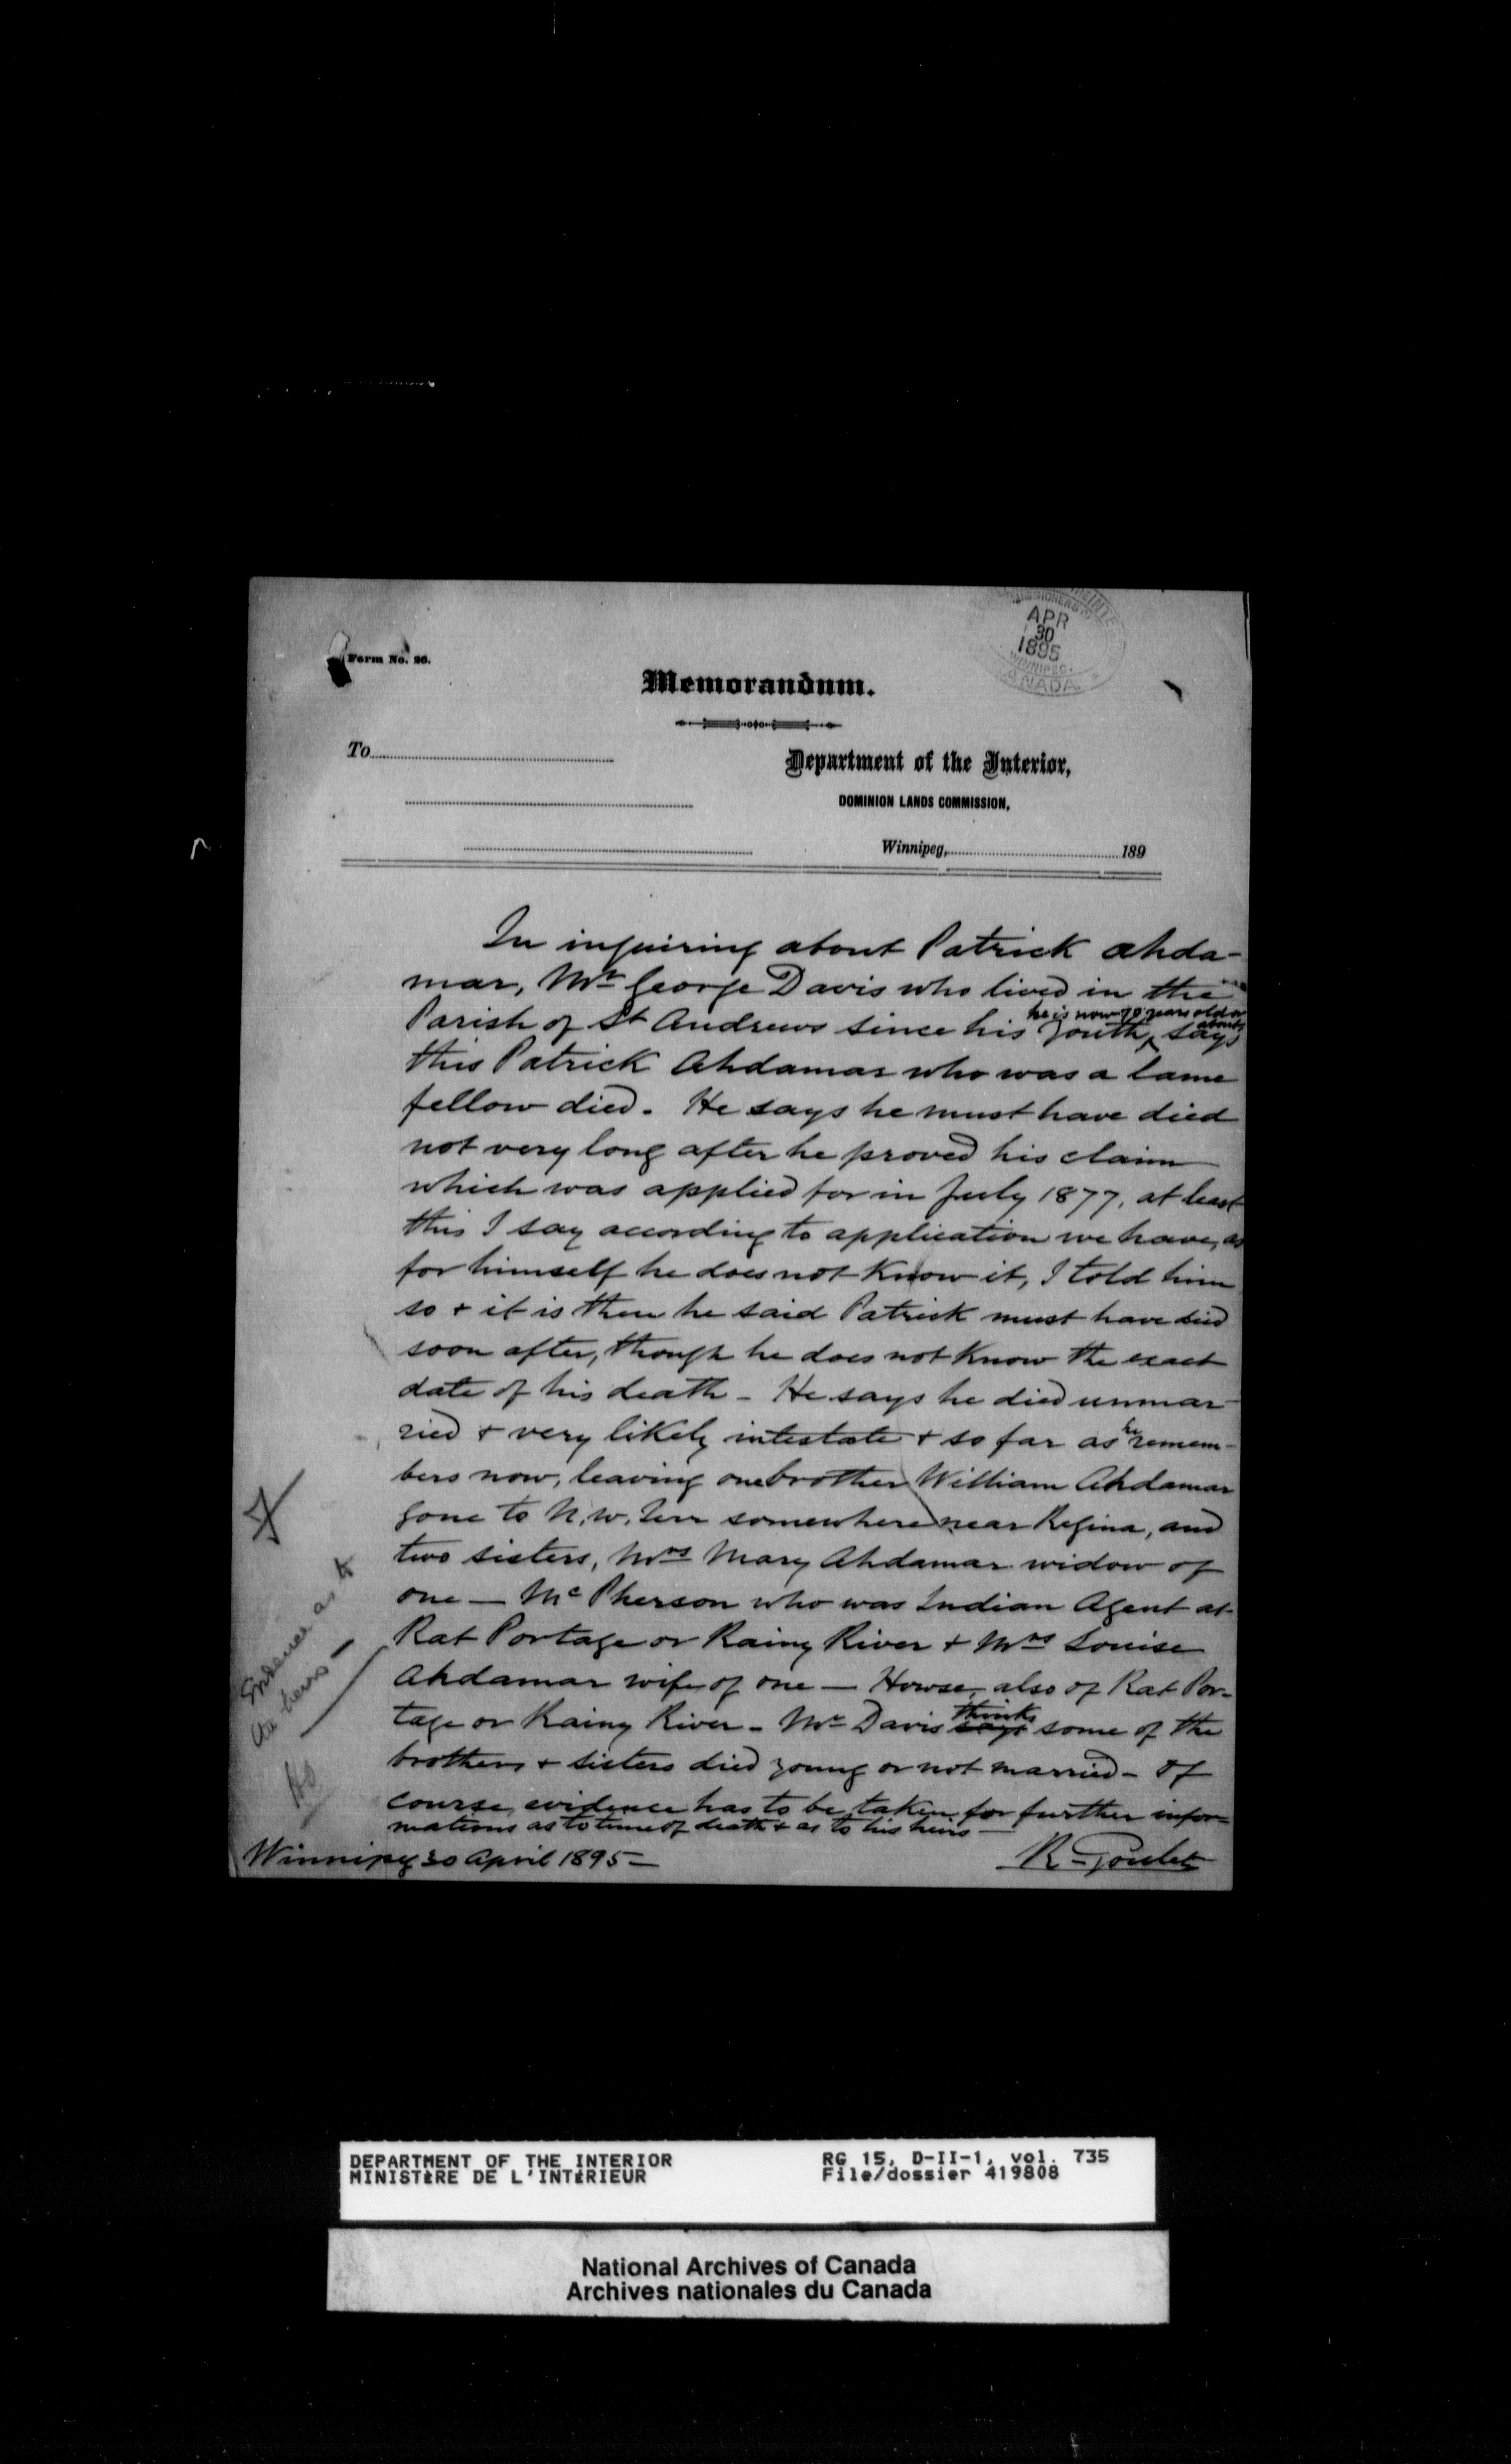 Form No. 26.
APR
30
1895
WINNIPEG.
CANADA.
Memorandum.
To
Department of the Interior,
DOMINION LANDS COMMISSION,
Winnipeg, 189
In inquiring about Patrick Ahda-
mar, Mr George Davis who lived in the
Parish of St Andrews since his youth, he is now 70 years old or about, says
this Patrick Ahdamar who was a lame
fellow died. He says he must have died
not very long after he proved his claim
which was applied for in July 1877, at least
this I say according to application we have, as
for himself he does not know it, I told him
so + it is then he said Patrick must have died
soon after, though he does not know the exact
date of his death - He says he died unmar-
ried + very likely intestate + so far as he remem-
bers now, leaving one brother William Ahdamar
gone to N.W. Terr somewhere near Regina, and
two sisters, Mrs Mary Ahdamar widow of
one — McPherson who was Indian Agent at
Rat Portage or Rainy River + Mrs Louise
Ahdamar wife of one — Howse, also of Rat Por-
tage or Rainy River - Mr Davis says thinks some of the
brothers + sisters died young or not married - Of
course, evidence has to be taken for further infor-
mations as to time of death + as to his heirs -
Evidence as to
the heirs
Winnipeg 30 April 1895 -
R. Goulet
DEPARTMENT OF THE INTERIOR
MINISTÈRE DE L'INTÉRIEUR
RG 15, D-II-1, vol. 735
File/dossier 419808
National Archives of Canada
Archives nationales du Canada